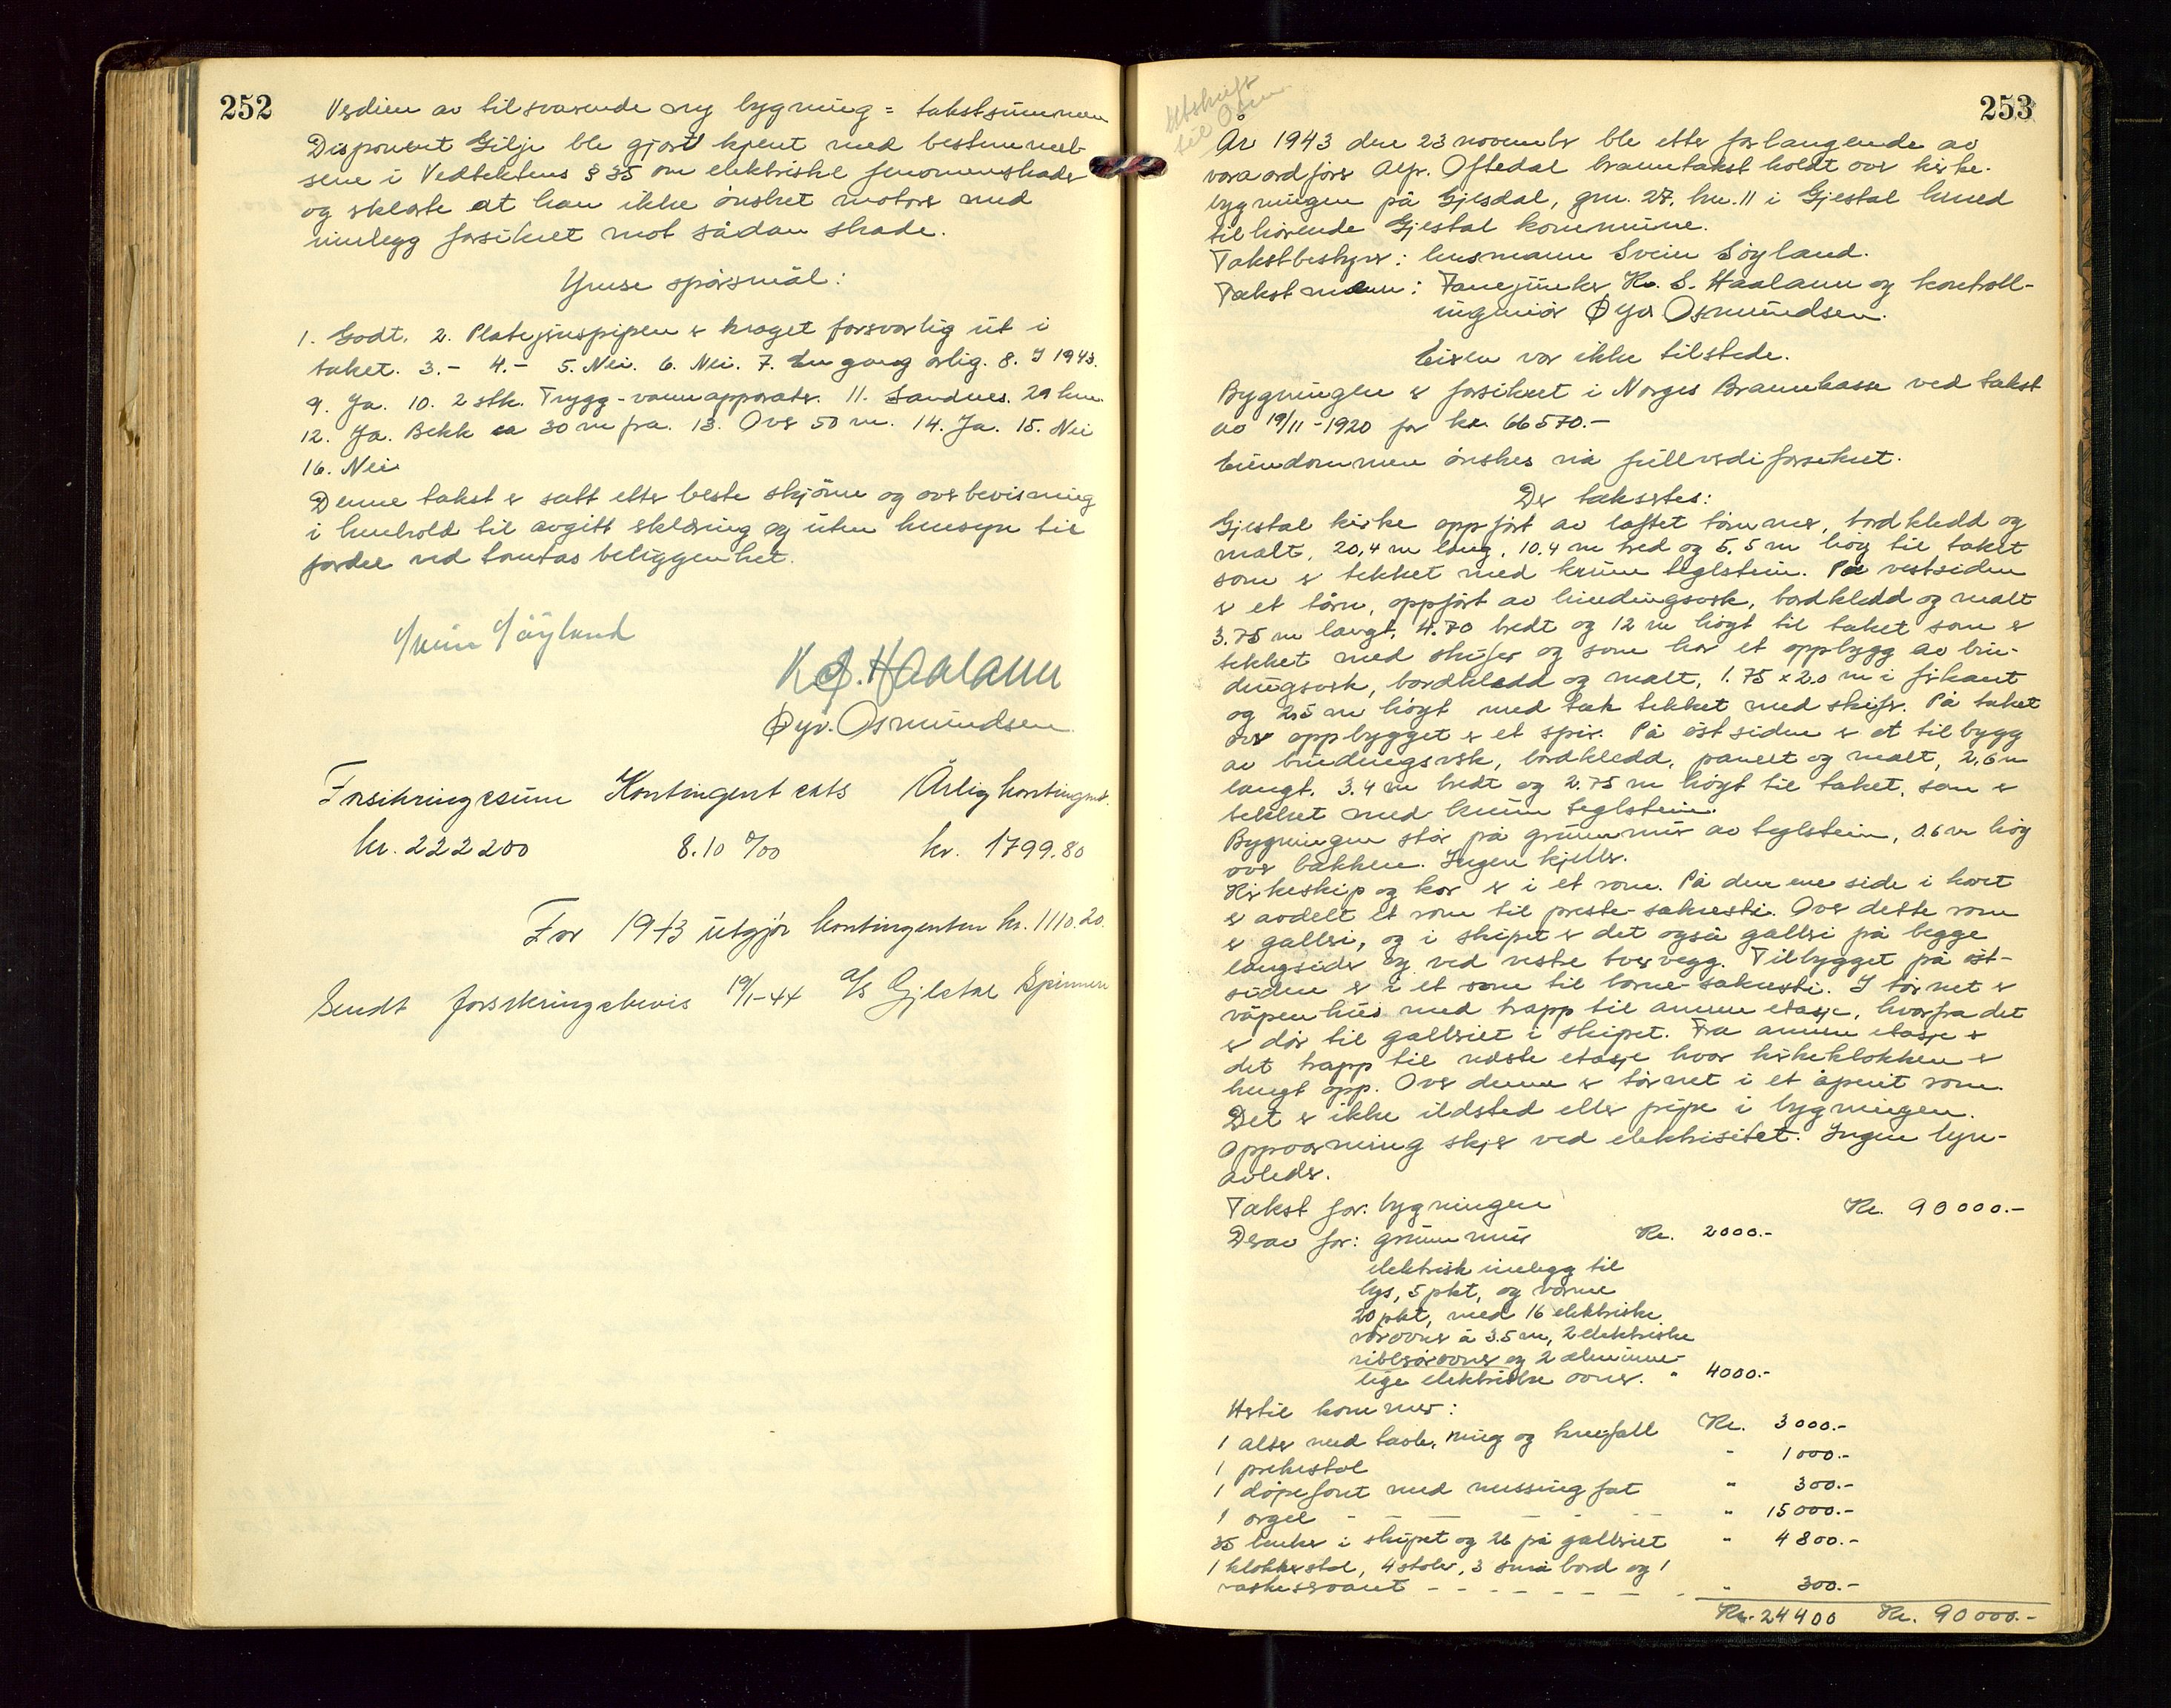 252
Verdien av tilsvarende ny bygning = takstsummen
Disponent Gilje ble gjort kjent med bestemmel-
sene i Vedtektens § 35 om elektriske fenomenskader
og erklærte at han ikke ønsket motorer med
innlegg forsikret mot sådan skade.
Ymse spørsmål:
1. Godt. 2. Platejernspipen er kraget forsvarlig ut i
taket. 3.- 4.- 5. Nei. 6. Nei. 7. En gang årlig. 8. I 1943.
9. Ja. 10. 2 stk. Trygg-vannapparater. 11. Sandnes. 29 km.
12. Ja. Bekk ca 30 m fra. 13. Over 50 m. 14. Ja. 15. Nei
16. Nei.
Denne takst er satt etter beste skjønn og overbevisning
i henhold til avgitt erklæring og uten hensyn til
fordel ved tomtas beliggenhet.
Svein Søyland
K. S. Haalann
Øyv. Osmundsen
Forsikringssum Kontingentsats Årlig kontingent.
kr. 222200 8.10 ‰ kr. 1799.80
For 1943 utgjør kontingenten kr. 1110.20.
Sendt forsikringsbevis 19/1-44 a/s Gjestal Spinneri
253
Utskrift
til
År 1943 den 23 november ble etter forlangende av
varaordfører Alfr. Oftedal branntakst holdt over kirke-
bygningen på Gjesdal, gnr. 27, bnr. 11 i Gjestal herred
tilhørende Gjestal kommune.
Takstbestyrer: lensmann Svein Søyland.
Takstmenn: Fanejunker K. S. Haalann og kontroll-
ingeniør Øyv. Osmundsen.
Eieren var ikke tilstede.
Bygningen er forsikret i Norges Brannkasse ved takst
av 19/11-1920 for kr. 66570.-
Eiendommen ønskes nå fullverdiforsikret.
Der taksertes:
Gjestal kirke oppført av laftet tømmer, bordkledd og
malt, 20,4 m lang, 10.4 m bred og 5.5 m høg til taket
som er tekket med krum teglstein. På vestsiden
er et tårn, oppført av bindingsverk, bordkledd og malt
3.75 m langt, 4.70 bredt og 12 m høgt til taket som er
tekket med skifer og som har et oppbygg av bin-
dingsverk, bordkledd og malt, 1.75 x 2.0 m i firkant
og 2.5 m høgt med tak tekket med skifer. På taket
over oppbygget er et spir. På østsiden er et tilbygg
av bindingsverk, bordkledd, panelt og malt, 2,6 m
langt, 3.4 m bredt og 2.75 m høgt til taket, som er
tekket med krum teglstein.
Bygningen står på grunnmur av teglstein, 0.6 m høg
over bakken. Ingen kjeller.
Kirkeskip og kor er i et rom. På den ene side i koret
er avdelt et rom til preste-sakresti. Over dette rom
er galleri, og i skipet er det også galleri på begge
langsider og ved vestre tverrvegg. Tilbygget på øst-
siden er i et rom til barne-sakresti. I tårnet er
våpenhus med trapp til annen etasje, hvorfra det
er dør til galleriet i skipet. Fra annen etasje er
det trapp til neste etasje hvor kirkeklokken er
hengt opp. Over denne er tårnet i et åpent rom.
Det er ikke ildsted eller pipe i bygningen.
Oppvarming skjer ved elektrisitet. Ingen lyn-
avleder.
Takst for: bygningen Kr. 90000.-
Derav for: grunnmur Kr. 2000.-
elektrisk innlegg til
lys, 5 pkt, og varme
20 pkt, med 16 elektriske
rørovner à 3.5 m, 2 elektriske
ribberørovner og 2 alminne-
lige elektriske ovner. " 4000.-
Hertil kommer:
1 alter med tavle, ring og knefall Kr. 3000.-
1 prekestol " 1000.-
1 døpefont med messingfat " 300.-
1 orgel - - - - " 15000.-
35 benker i skipet og 26 på galleriet " 4800.-
1 klokkerstol, 4 stoler, 3 små bord og 1
vaskeservant - - - - - - " 300.-
Kr. 24400 Kr. 90000.-